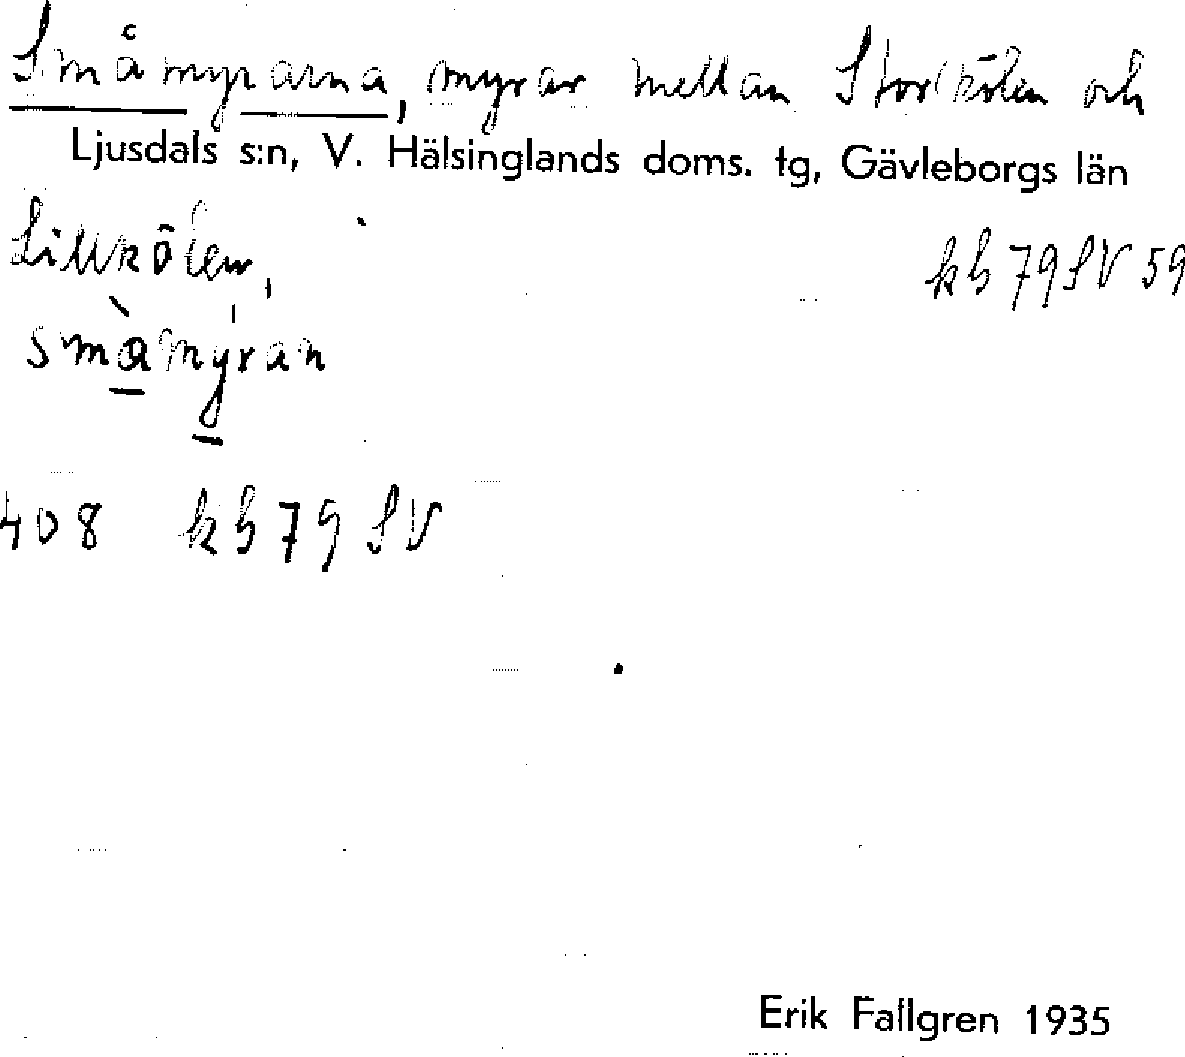 Småmyrarna, myrar mellan Storkölen och
Ljusdals s:n, V. Hälsinglands doms. tg, Gävleborgs län
Lillkölen,
kh 79 SV 59
småmyran
408 kh 79 SV
Erik Fallgren 1935